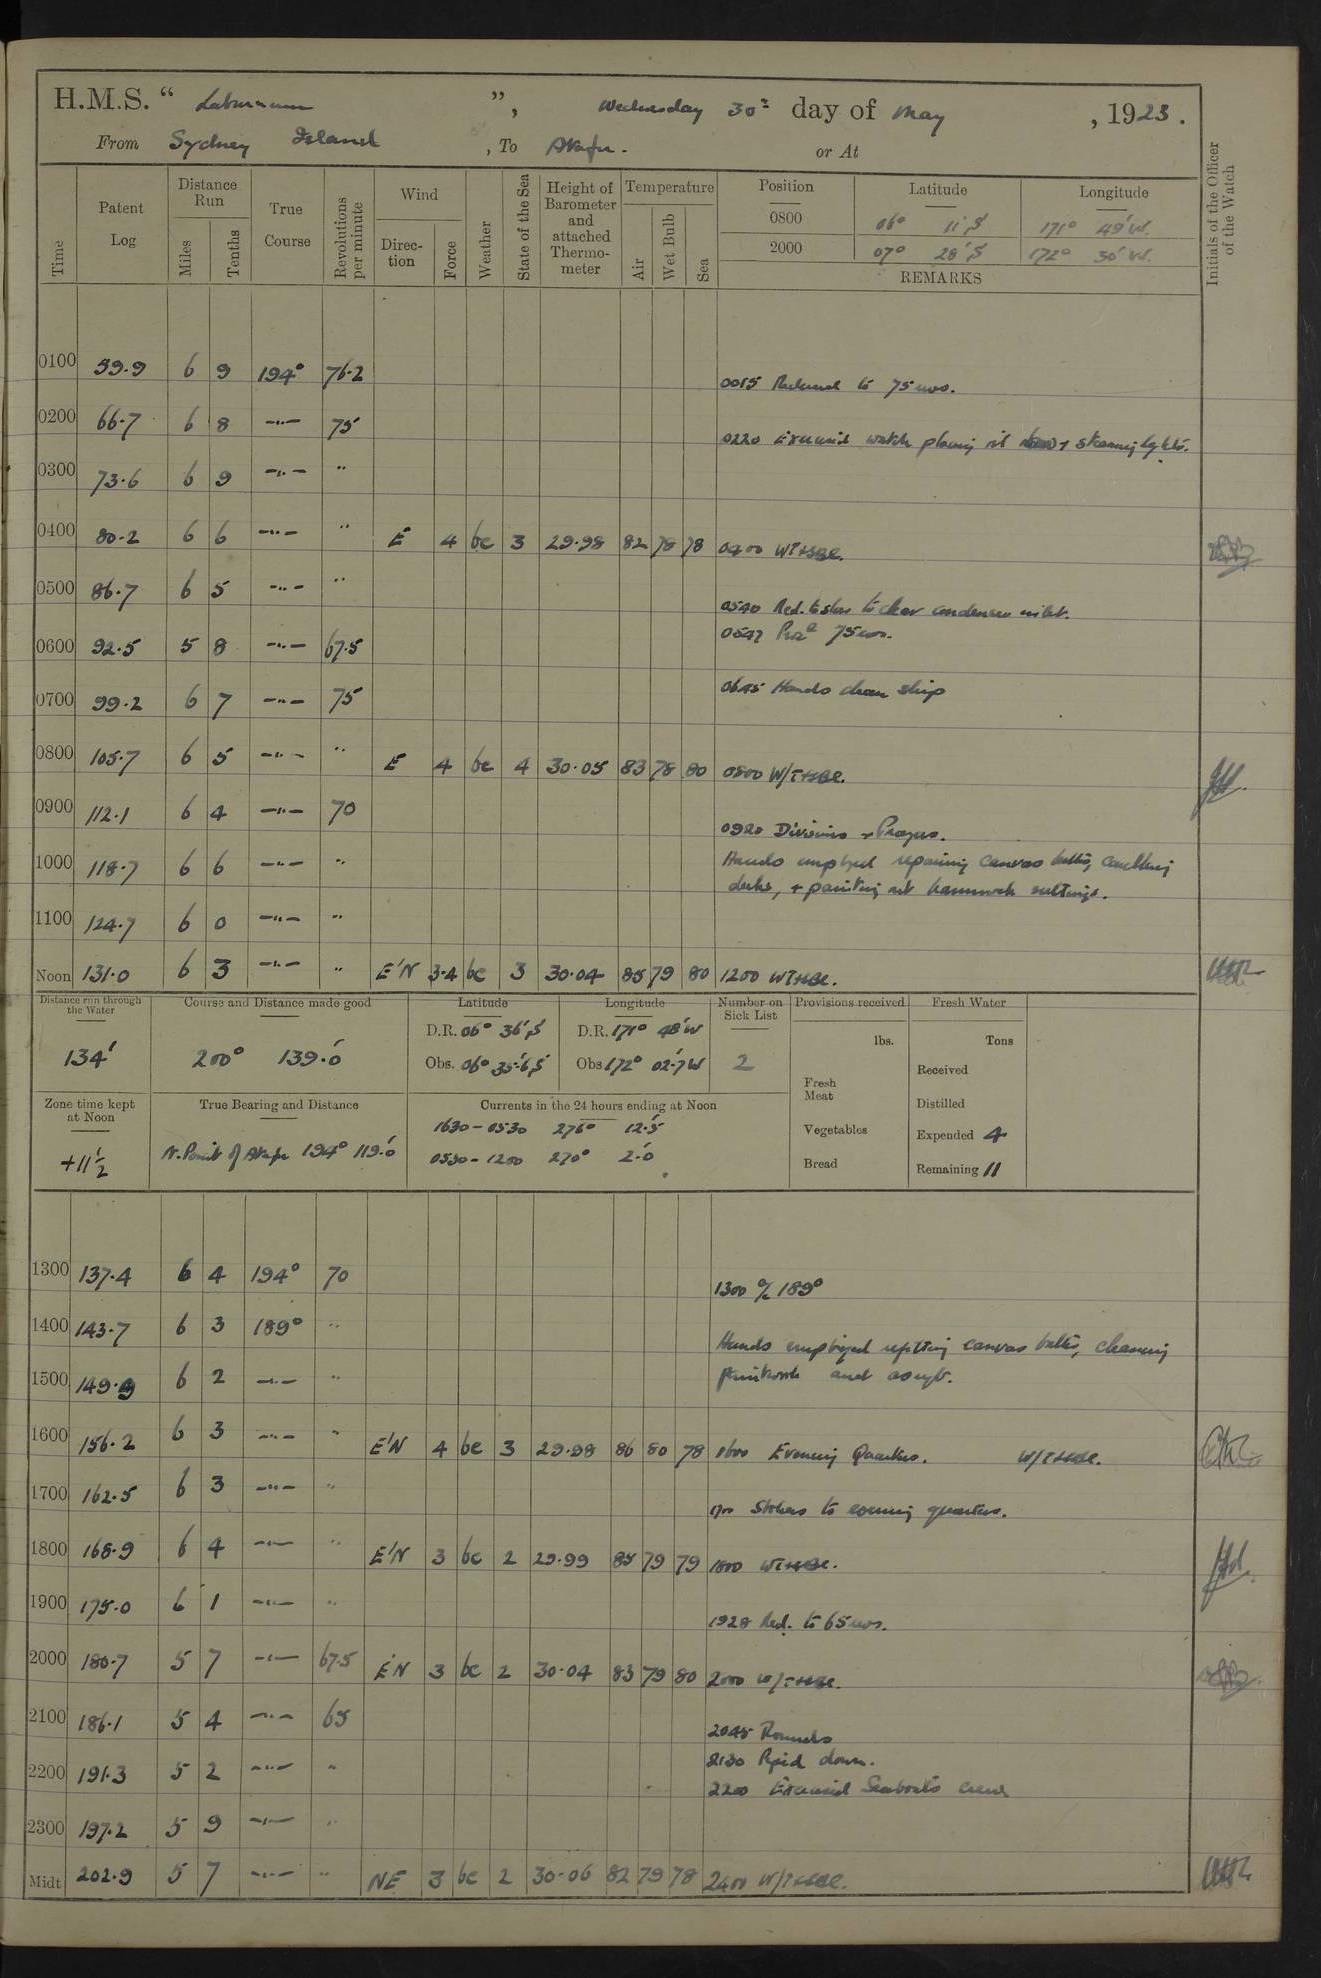 H.M.S. “ Laburnum ”, Wednesday 30th day of May , 1923.
From Sydney Island , To Atafu. or At
Time
Patent Log
Distance Run
Miles
Tenths
True Course
Revolutions per minute
Wind
Direc-tion
Force
Weather
State of the Sea
Height of Barometer and attached Thermo-meter
Temperature
Air
Wet Bulb
Sea
Position Latitude Longitude
0800 06° 11'S 171° 49'W.
2000 07° 28'S 172° 30'W.
REMARKS
Initials of the Officer of the Watch
0100 59.9 6 9 194° 76.2
0015 Reduced to 75 revs.
0200 66.7 6 8 —"— 75
0220 Exercised watch placing oil & steaming lights.
0300 73.6 6 9 —"— "
0400 80.2 6 6 —"— " E 4 bc 3 29.98 82 78 78 0400 WT+SBE.
0500 86.7 6 5 —"— "
0540 Red. to slow to clear condenser inlet.
0547 Proc 75 revs.
0600 92.5 5 8 —"— 67.5
0645 Hands clean ship
0700 99.2 6 7 —"— 75
0800 105.7 6 5 —"— " E 4 bc 4 30.05 83 78 80 0800 W/T+SBE.
0900 112.1 6 4 —"— 70
0920 Divisions + Prayers.
Hands employed repairing canvas belts, caulking
1000 118.7 6 6 —"— "
decks, + painting out hammock nettings.
1100 124.7 6 0 —"— "
Noon 131.0 6 3 —"— " E'N 3.4 bc 3 30.04 85 79 80 1200 WT+SBE.
Distance run through the Water
134'
Course and Distance made good
200° 139.0'
Latitude
D.R. 06° 36'S
Obs. 06° 35.6'S
Longitude
D.R. 171° 48'W
Obs 172° 02.7'W
Number on Sick List
2
Provisions received
lbs.
Fresh Meat
Vegetables
Bread
Fresh Water
Tons
Received
Distilled
Expended 4
Remaining 11
Zone time kept at Noon
+11½
True Bearing and Distance
N. Point of Atafu 194° 119.0'
Currents in the 24 hours ending at Noon
1630 – 0530 276° 12.5'
0530 – 1200 270° 2.0'
1300 137.4 6 4 194° 70
1300 a/c 189°
1400 143.7 6 3 189° "
Hands employed refitting canvas belts, cleaning
paintwork and as reqd.
1500 149.9 6 2 —"— "
1600 156.2 6 3 —"— " E'N 4 bc 3 29.98 86 80 78 1600 Evening Quarters. W/T+SBE.
1700 162.5 6 3 —"— "
1700 Stokers to evening quarters.
1800 168.9 6 4 —"— " E'N 3 bc 2 29.99 85 79 79 1800 WT+SBE.
1900 175.0 6 1 —"— "
1928 Red. to 65 revs.
2000 180.7 5 7 —"— 67.5 E'N 3 bc 2 30.04 83 79 80 2000 W/T+SBE.
2100 186.1 5 4 —"— 65
2045 Rounds
2130 Piped down.
2200 191.3 5 2 —"— "
2200 Exercised Seaboat's crew
2300 197.2 5 9 —"— "
Midt 202.9 5 7 —"— " NE 3 bc 2 30.06 82 79 78 2400 W/T+SBE.